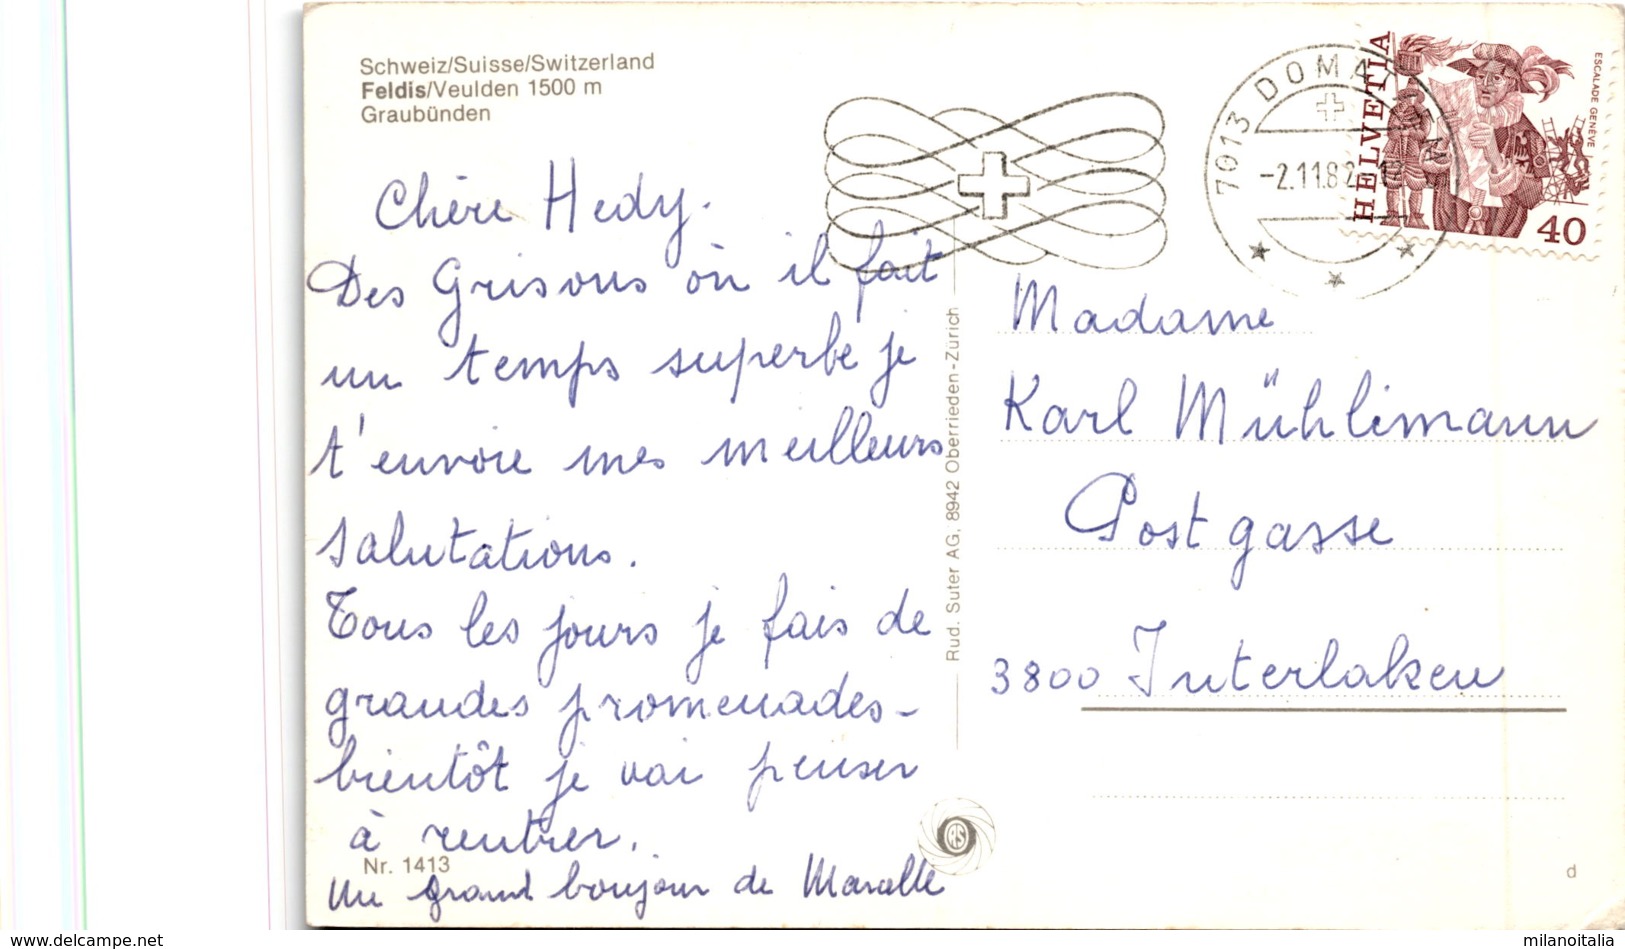 Schweiz/Suisse/Switzerland
Feldis/Veulden 1500 m
Graubünden
Chère Hedy.
Des Grisons où il fait
un temps superbe je
t'envoie mes meilleurs
salutations.
Tous les jours je fais de
grandes promenades -
bientôt je vai penser
à rentrer.
Nr. 1413
Un grand bonjour de
Rud. Suter AG, 8942 Oberrieden-Zürich
RS
7013 DOMAT
-2.11.82
HELVETIA
ESCALADE GENÈVE
40
Madame
Karl Mühlimann
Postgasse
3800 Interlaken
d
delcampe.net
milanoitalia